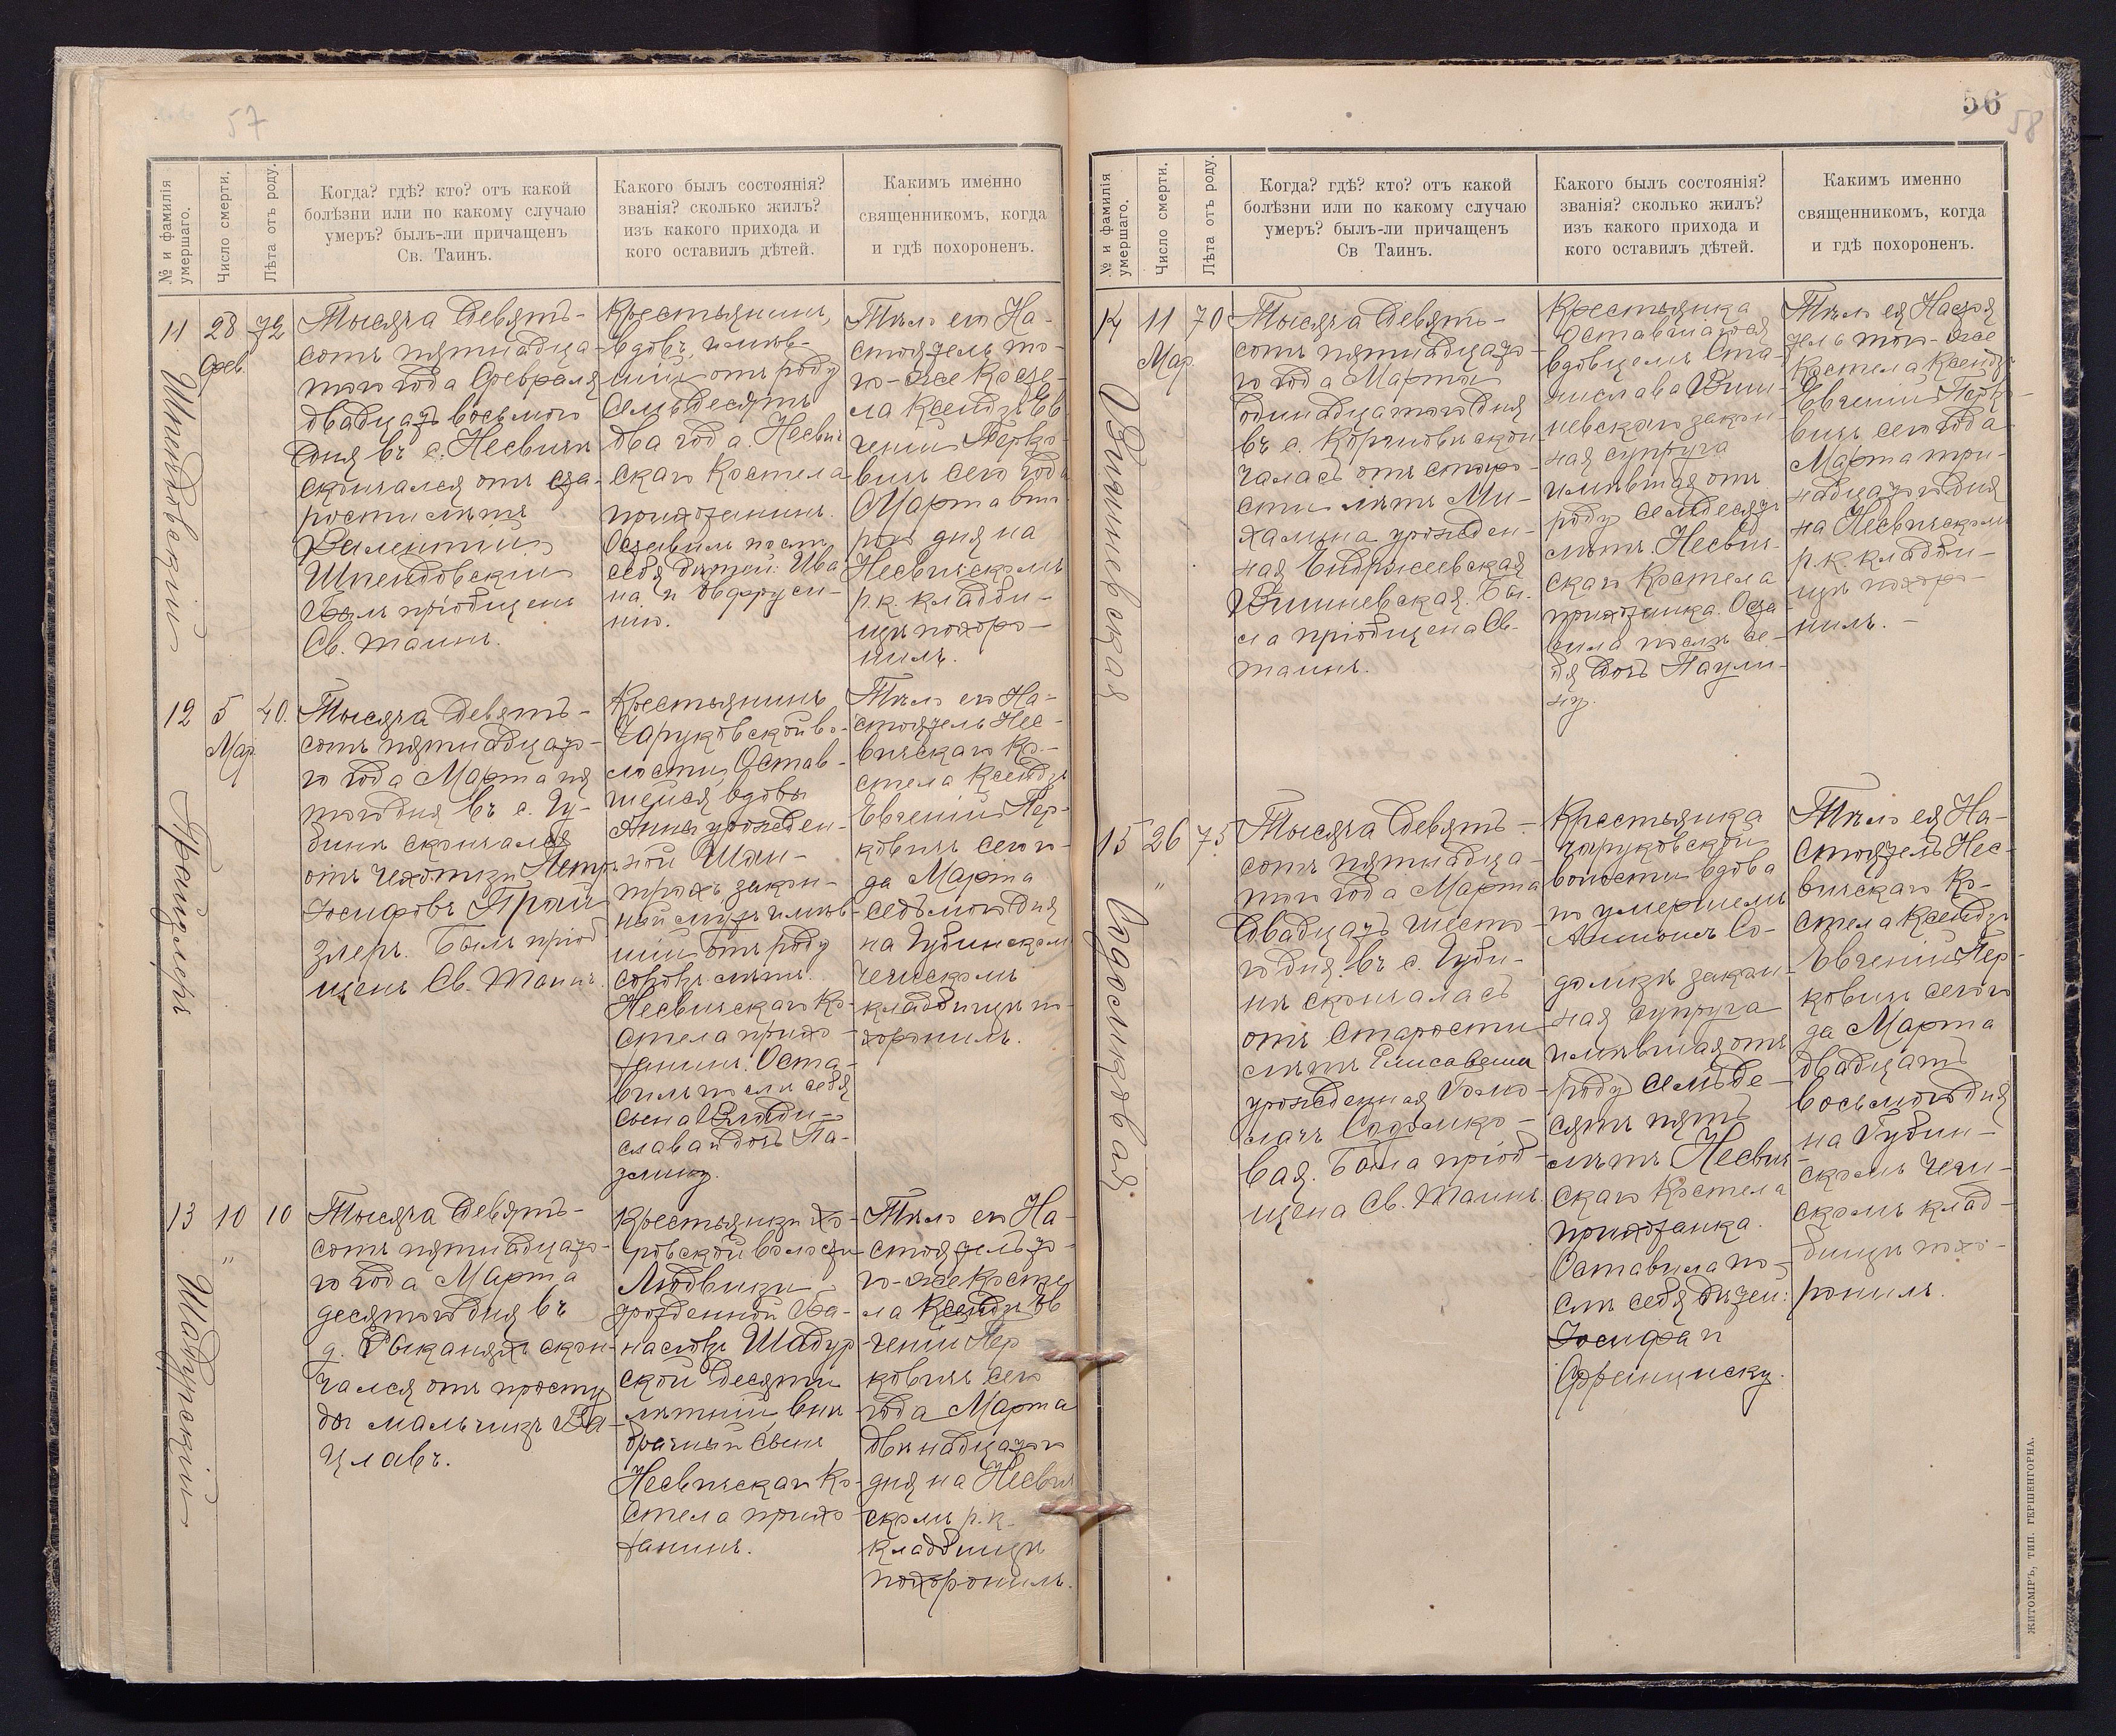 57
№ и фамилія умершаго.
Число смерти.
Лѣта отъ роду.
Когда? гдѣ? кто? отъ какой
болѣзни или по какому случаю
умеръ? былъ-ли причащенъ
Св. Таинъ.
Какого былъ состоянія?
званія? сколько жилъ?
изъ какого прихода и
кого оставилъ дѣтей.
Какимъ именно
священникомъ, когда
и гдѣ похороненъ.
11
Шпендовскій
28
Фев.
72
Тысяча девять-
сотъ пятнадца-
таго года Февраля
двадцать восьмого
дня въ с. Несвичи
скончался отъ ста-
рости лѣтъ
Валентій
Шпендовскій
Былъ пріобщенъ
Св. таинъ.
Крестьянинъ,
вдовъ, имѣв-
шій отъ роду
семьдесять
два года. Несвич
скаго Костела
прихожанинъ.
Оставилъ послѣ
себя дѣтей: Ива
на и
Тѣло его На-
стоятель то-
го-же Косте-
ла Ксендзъ Ев
геній Перко-
вичъ сего года
Марта вто
рого дня на
Несвичскомъ
р.к. кладби-
щѣ похоро-
нилъ.
12
Трайзлеръ
5
Мар.
40.
Тысяча девять-
сотъ пятнадцато-
го года Марта пя
того дня въ с. Гу-
бинѣ скончался
отъ чахотки Петръ
Іосифовъ Трай
злеръ. Былъ пріоб
щенъ Св. Таинъ.
Крестьянинъ
Чаруковской во-
лости, Остав-
шейся вдовы
Анны урожден-
ной Шан-
трохъ, закон-
ный мужъ имѣв-
шій отъ роду
сорокъ лѣтъ.
Несвичскаго Ко-
стела прихо-
жанинъ. Оста-
вилъ послѣ себя
сына Влади-
слава и дочь Па-
улину.
Тѣло его На-
стоятель Нес-
вичскаго Ко-
стела Ксендзъ
Евгеній Пер-
ковичъ сего го-
да Марта
седьмого дня
на Губинскомъ
чешскомъ
кладбищѣ по-
хоронилъ.
13
Шадурскій
10
"
10
Тысяча девять-
сотъ пятнадцато-
го года Марта
десятого дня въ
д. Рыканяхъ скон-
чался отъ просту
ды мальчикъ Ва-
цлавъ.
Крестьянки Хо-
ровской волости
Людвики
урожденной
Шадур
ской десяти
лѣтній, внѣ-
брачный сынъ
Несвичскаго Ко-
стела прихо-
жанинъ.
Тѣло его На-
стоятель то-
го-же Косте
ла Ксендзъ Ев
геній Пер
ковичъ сего
года Марта
двѣнадцатого
дня на Несвич
скомъ р.к.
кладбищѣ
похоронилъ.
56
58
№ и фамилія умершаго.
Число смерти.
Лѣта отъ роду.
Когда? гдѣ? кто? отъ какой
болѣзни или по какому случаю
умеръ? былъ-ли причащенъ
Св Таинъ.
Какого былъ состоянія?
званія? сколько жилъ?
изъ какого прихода и
кого оставилъ дѣтей.
Какимъ именно
священникомъ, когда
и гдѣ похороненъ.
14
Вишневская
11
Мар.
70
Тысяча девять-
сотъ пятнадцато-
го года Марта
одинадцатого дня
въ с. Коршовѣ скон-
чалась отъ старо-
сти лѣтъ Ми-
халина урожден-
ная Ендржеевская
Вишневская. Бы-
ла пріобщена Св.
таинъ.
Крестьянка
Оставшагося
вдовцемъ Ста-
нислава Виш-
невскаго закон-
ная супруга
имѣвшая отъ
роду семдесять
лѣтъ. Несвич-
скаго Костела
прихожанка. Оста-
вила послѣ се-
бя дочь Паули-
ну.
Тѣло ея Настоя
тель того-же
Костела Ксендзъ
Евгеній Перко-
вичъ сего года
Марта три-
надцатого дня
на Несвичскомъ
р.к. кладби-
щѣ похоро-
нилъ.-
15
Содомковая
26
"
75
Тысяча девять-
сотъ пятнадца-
того года Марта
двадцать шесто-
го дня въ с. Губи-
нѣ скончалась
отъ старости
лѣтъ Елисавета
урожденная
Содомко-
вая. Была пріоб-
щена Св. Таинъ.
Крестьянка
Чаруковской
волости вдова
по умершемъ
Антонѣ Со-
домкѣ закон-
ная супруга
имѣвшая отъ
роду семьде-
сять пять
лѣтъ Несвич
скаго Костела
прихожанка.
Оставила по-
слѣ себя дѣтей:
Іосифа и
Францишку.
Тѣло ея На-
стоятель Нес-
вичскаго Ко-
стела Ксендзъ
Евгеній Пер-
ковичъ сего го
да Марта
двадцать
восьмого дня
на Губин-
скомъ чеш-
скомъ клад-
бищѣ похо-
ронилъ.
ЖИТОМІРЪ, ТИП. ГЕРШЕНГОРНА.